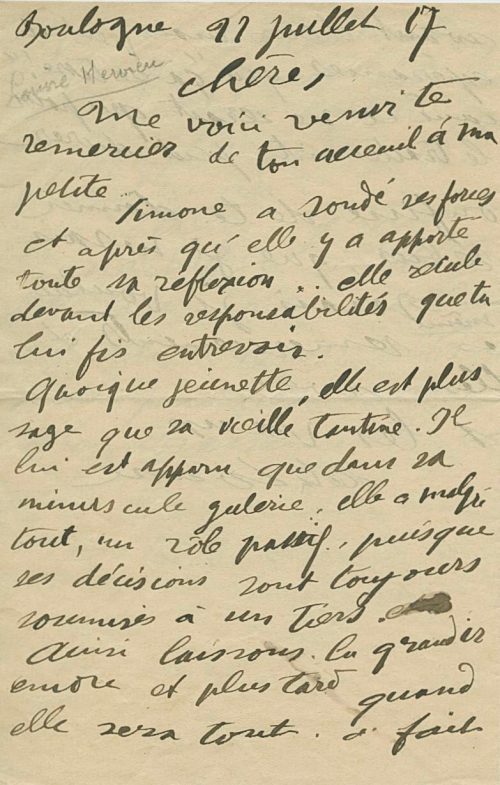 Boulogne 22 juillet 17
Louise Hervieu
chères,
Me voici venir te
remercier de ton acceuil à ma
petite.
Simone a sondé ses forces
et après qu'elle y a apporté
toute sa réflexion .. elle recule
devant les responsabilités que tu
lui fis entrevoir.
Quoique jeunette, elle est plus
sage que sa vieille tantine. Il
lui est apparu que dans sa
minuscule galerie, elle a malgré
tout, un rôle passif, puisque
ses décisions sont toujours
soumises à un tiers.
Ainsi laissons-la grandir
encore et plus tard quand
elle sera tout à fait